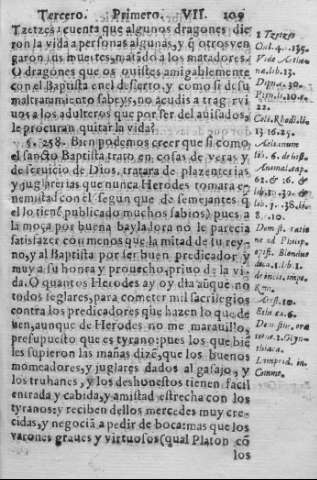 Tercero. Primero. VII. 109
Tzetzes: cuenta que algunos dragones die
ron la vida a personas algunas, y q̃ otros ven
garon sus muertes, matado a los matadores.
O dragones que os ouistes amigablemente
con el Baptista en el desierto, y como si de su
maltratamiento sabeys, no acudis a trag r vi
uos a los adulteros que por ser del auisados,
le procuran quitar la vida?
§. 258. Bien podemos creer que si como
el sancto Baptista trato en cosas de veras y
de seruicio de Dios, tratara de plazenterias
y juglarerias que nunca Herodes tomara e
nemistad con el segun que de semejantes q̃
el lo tiene publicado muchos sabios) pues a
la moça por buena bayladora no le parecia
satisfazer con menos que la mitad de su rey-
no, y al Baptista por ser buen predicador y
muy a su honra y prouecho, priuo de la vi-
da. O quantos Herodes ay oy dia aũque no
todos seglares, para cometer mil sacrilegios
contra los predicadores que hazen lo que de
uen, aunque de Herodes no me marauillo,
presupuesto que es tyrano: pues los que biẽ
les supieron las mañas dizẽ, que los buenos
momeadores, y juglares dados al gasajo, y
los truhanes, y los deshonestos tienen facil
entrada y cabida, y amistad estrecha con los
tyranos: y reciben dellos mercedes muy cre-
cidas, y negociã a pedir de boca: mas que los
varones graues y virtuosos (qual Platon cõ
los
1 Tzetzes
Chil. 4. 135.
lib. 13.
22.
13 16. 25.
lib. 6. de
Animal. cap.
8. 10.
lib. 1.
Rom.
Arist. 10.
Ethi. ca. 6.
Lamprid. in
Commo.